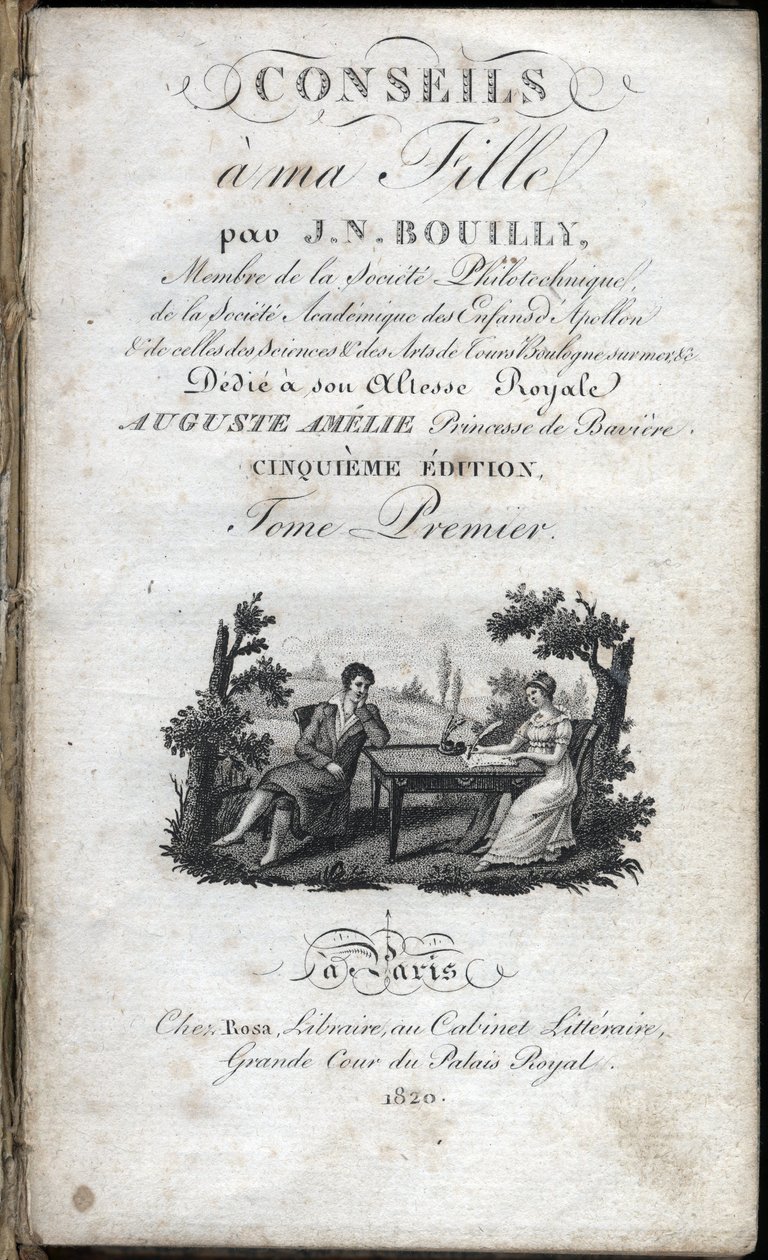 CONSEILS
à ma Fille
par J. N. BOUILLY,
Membre de la Société Philotechnique,
de la Société Académique des Enfans d'Apollon
& de celles des Sciences & des Arts de Tours Boulogne sur mer, &c
Dédié à son Altesse Royale
AUGUSTE AMÉLIE Princesse de Bavière.
CINQUIÈME ÉDITION,
Tome Premier.
à Paris
Chez Rosa, Libraire, au Cabinet Littéraire,
Grande Cour du Palais Royal.
1820.